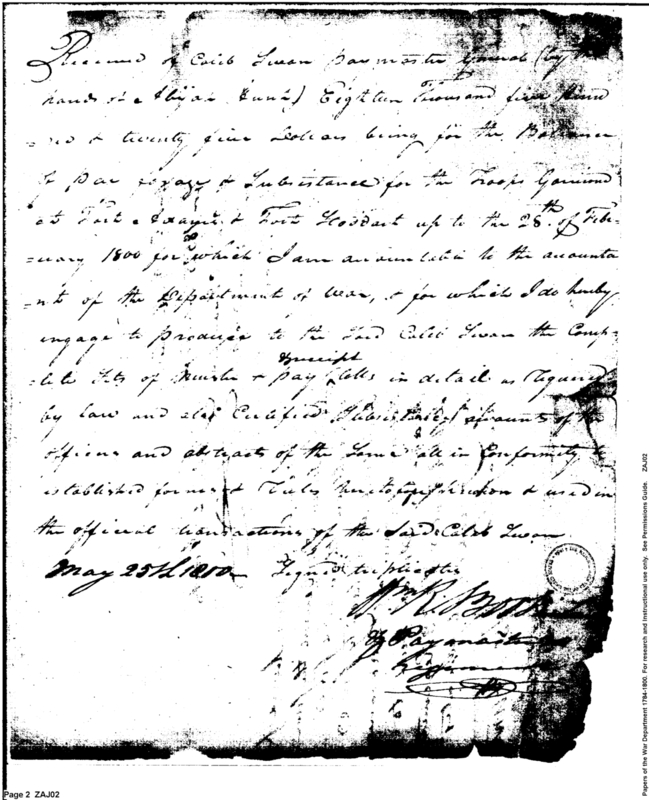 Received of Caleb Swan paymaster General (by
hands of Abijah Hunt) Eighteen Thousand five Hund
=red & twenty five Dollars being for the Balance
of pay forage & Subsistance for the Troops Garrisond
at Fort Adams & Fort Stoddart up to the 28th. of Feb-
=uary 1800 for which I am accountable to the accounta
=nt of the Department of War, & for which I do hereby
engage to produce to the Said Caleb Swan the Comp-
=lete Sets of Muster & pay
& receipt
Rolls in detail as required
by law and also Certified Subsistence accounts of the
officers and abstracts of the Same all in Conformity to
established forms & Rules heretofore & used in
the official transactions of the Said Caleb Swan
May 25th 1800 Signed triplicates
Wm R. Boote
Paymaster
Regiment
Page 2 ZAJ02
Papers of the War Department 1784-1800. For research and Instructional use only. See Permissions Guide. ZAJ02